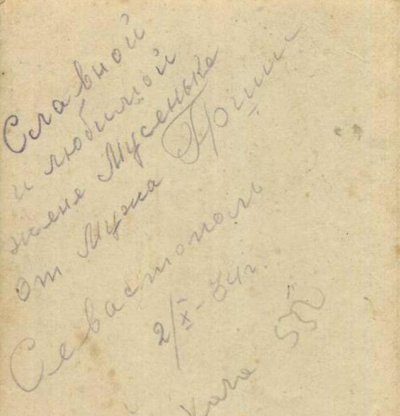 Славной
и любимой
жене Мусеньке
от Мужа Гриши
Севастополь
2/X-34г.